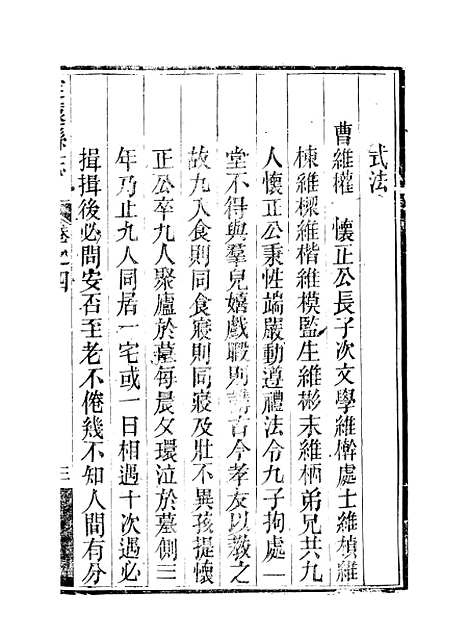 式法
曹維權 懷正公長子次文學維檊處士維楨維
棟維樑維楷維模監生維彬末維柄弟兄共九
人懷正公秉性端嚴動遵禮法令九子拘處一
堂不得與羣兒嬉戲暇則講古今孝友以教之
故九人食則同食寢則同寢及壯不異孩提懷
正公卒九人聚廬於墓每晨夕環泣於墓側三
年乃止九人同居一宅或一日相遇十次遇必
揖揖後必問安否至老不倦幾不知人間有分
縣志 卷之四 三